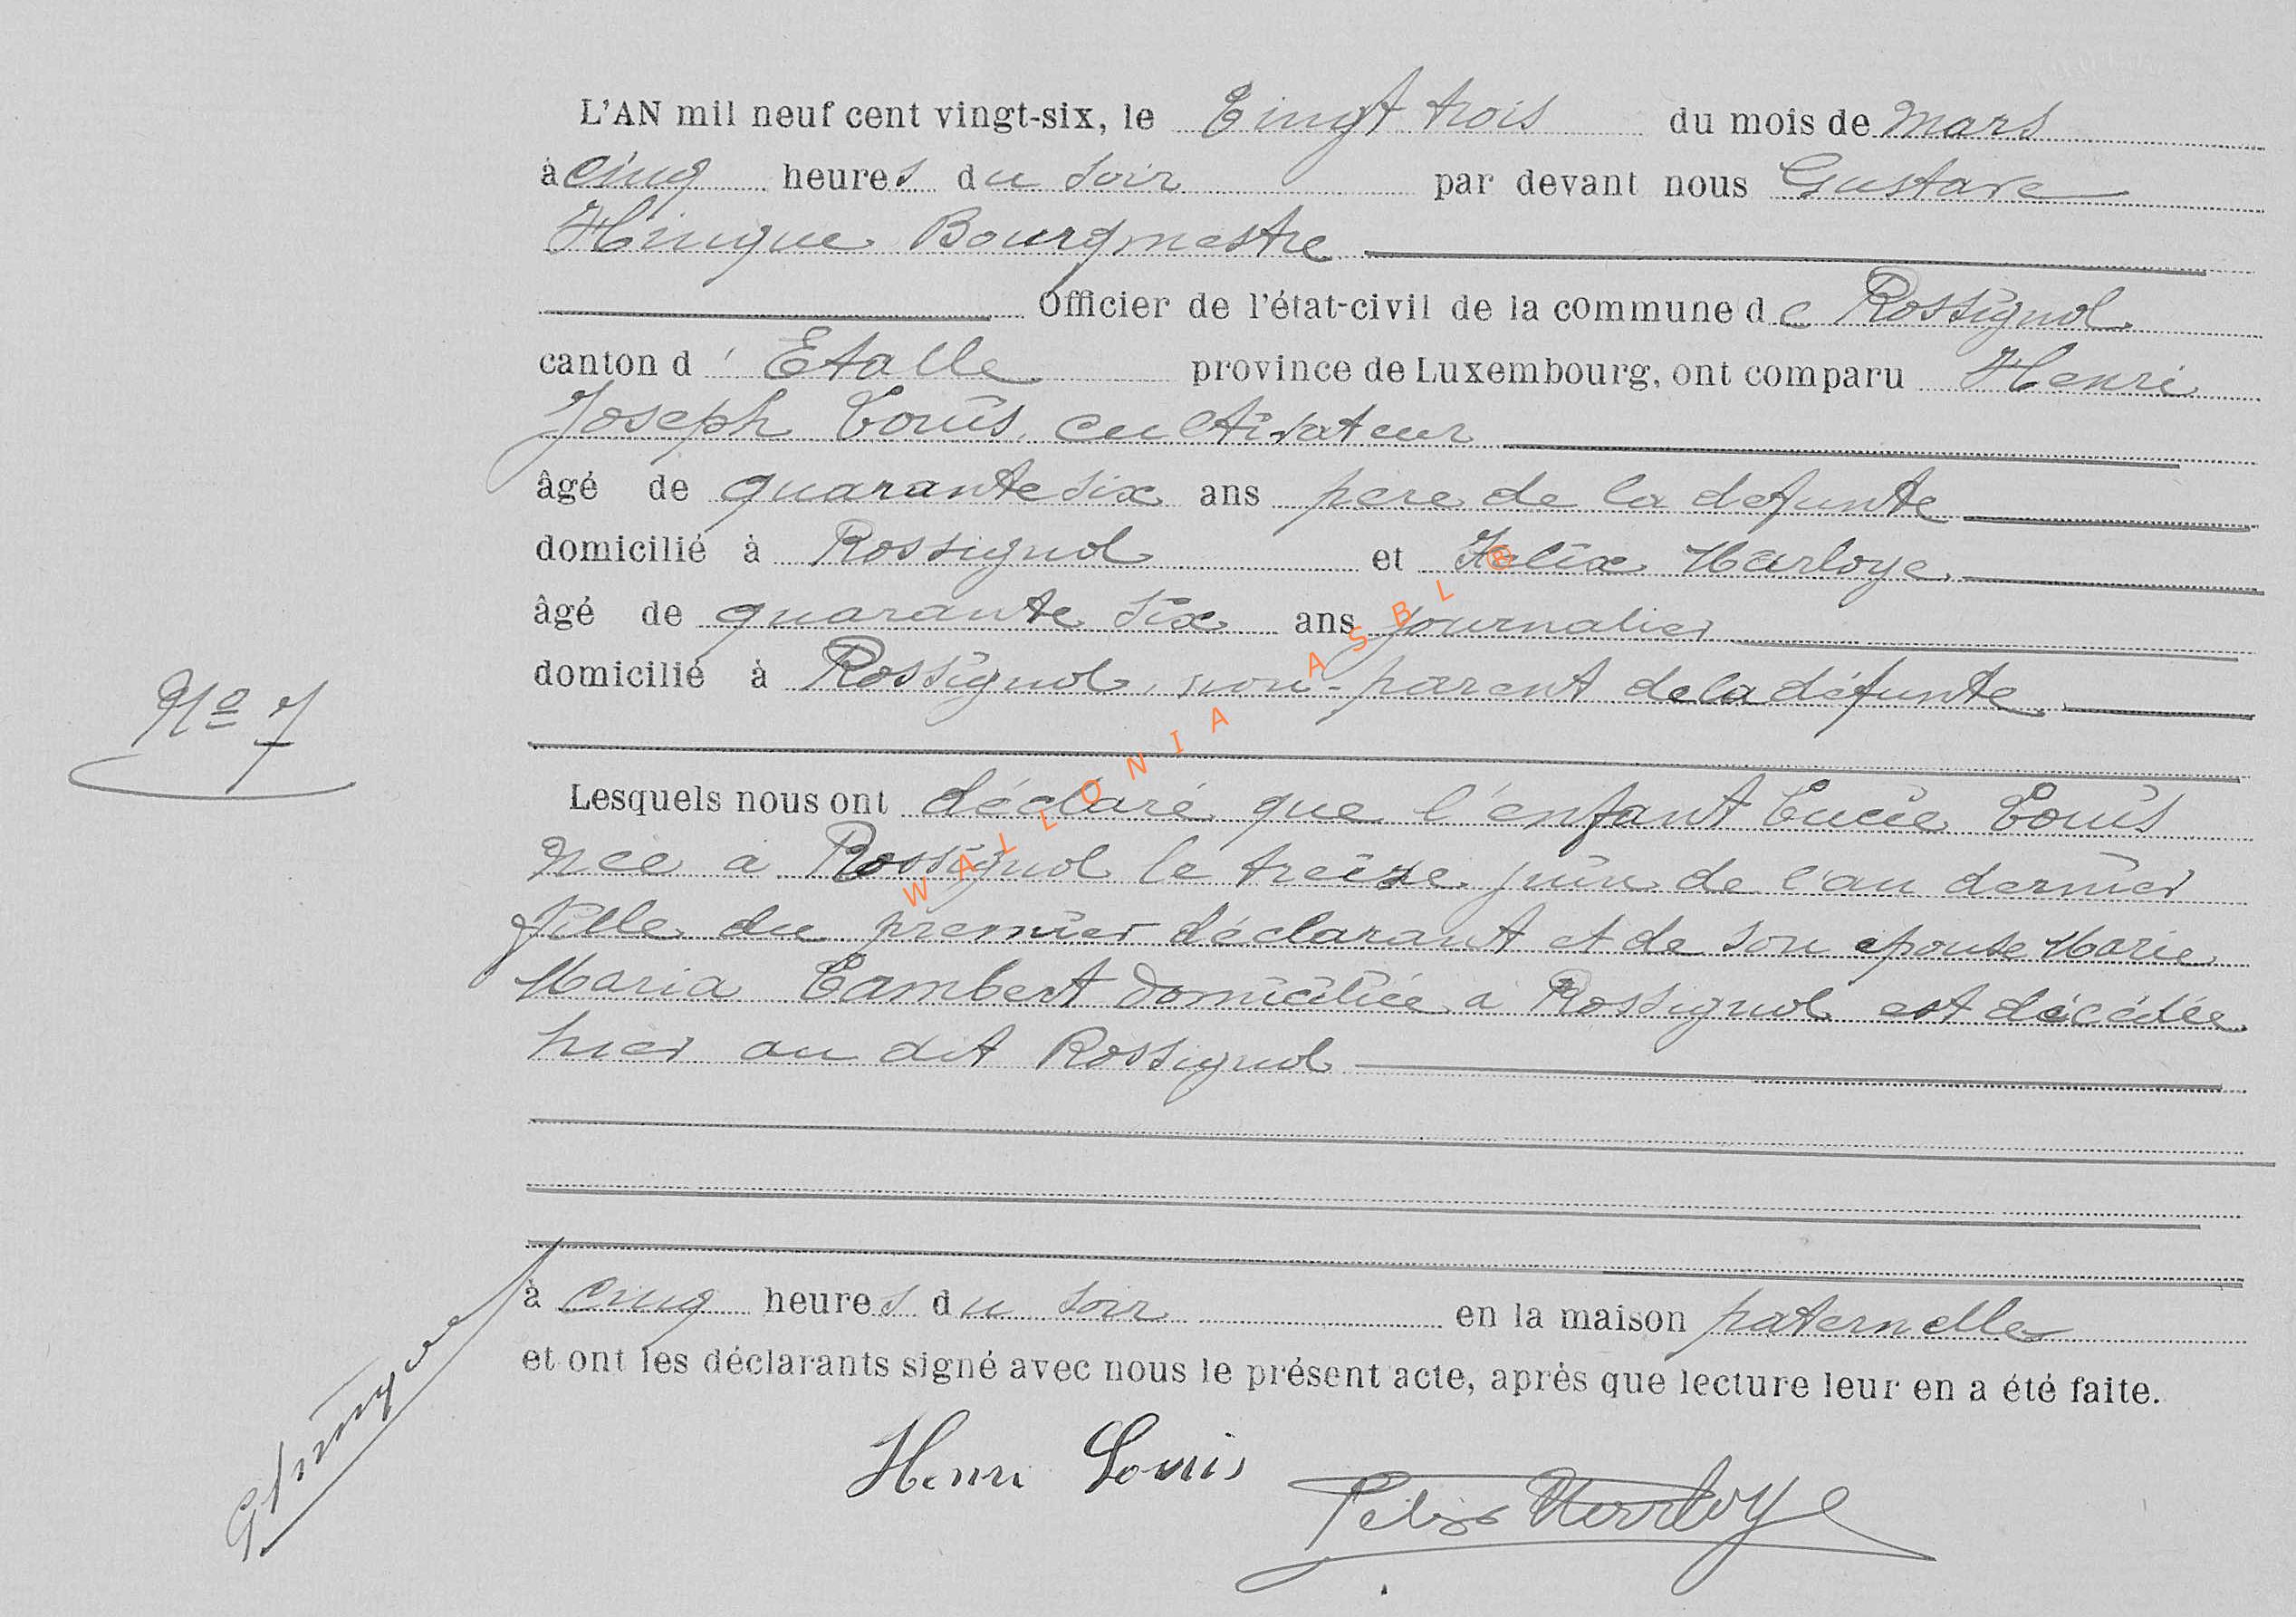 L'AN mil neuf cent vingt-six, le Vingt trois du mois de Mars
à cinq heures du soir par devant nous Gustave
Hinque Bourgmestre
Officier de l'état-civil de la commune de Rossignol
canton d'Etalle province de Luxembourg, ont comparu Henri
Joseph Louis, cultivateur
âgé de quarante six ans père de la defunte
domicilié à Rossignol et Félix Marloye
âgé de quarante six ans journalier
domicilié à Rossignol, non-parent de la défunte.
No 7
Lesquels nous ont déclaré que l'enfant Lucie Louis
née à Rossignol le treize juin de l'an dernier
fille du premier déclarant et de son épouse Marie
Maria Lambert domiciliée à Rossignol est décédée
hier au dit Rossignol
à cinq heures du soir en la maison paternelle
et ont les déclarants signé avec nous le présent acte, après que lecture leur en a été faite.
GHinque
Henri Louis
Félix Marloye
WALLONIA ASBL ®